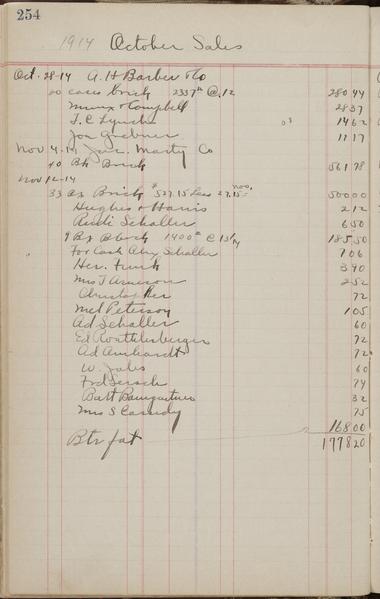 254
1914 October Sales
Oct. 28-14 A. H Barber & Co
20 cases brick 2337# @ .12 280 44
Munz & Campbell 28 37
L. C Lynch 14 62
Joe 11 17
Nov 4-14 Jas. Marty Co
40 Bx Brick 561 78
Nov 12-14
33 Bx Brick 527.15 Less 27.15 500 00
Hughes & Harris 2 12
Rudi Schaller 6 50
9 Bx Block 1400# @ 13 1/4 185 50
For Cash Schaller 1 06
Her. Funk 3 90
Mrs J Arneson 2 52
Christopher 72
Mel Peterson 1 05
Ad Schaller 60
Ed Roethlisberger 72
Ad Amhardt 72
W. Jabs 60
Frd 74
Batt Baumgartner 32
Mrs S Cassidy 75
168 00
Btr fat 1778 20